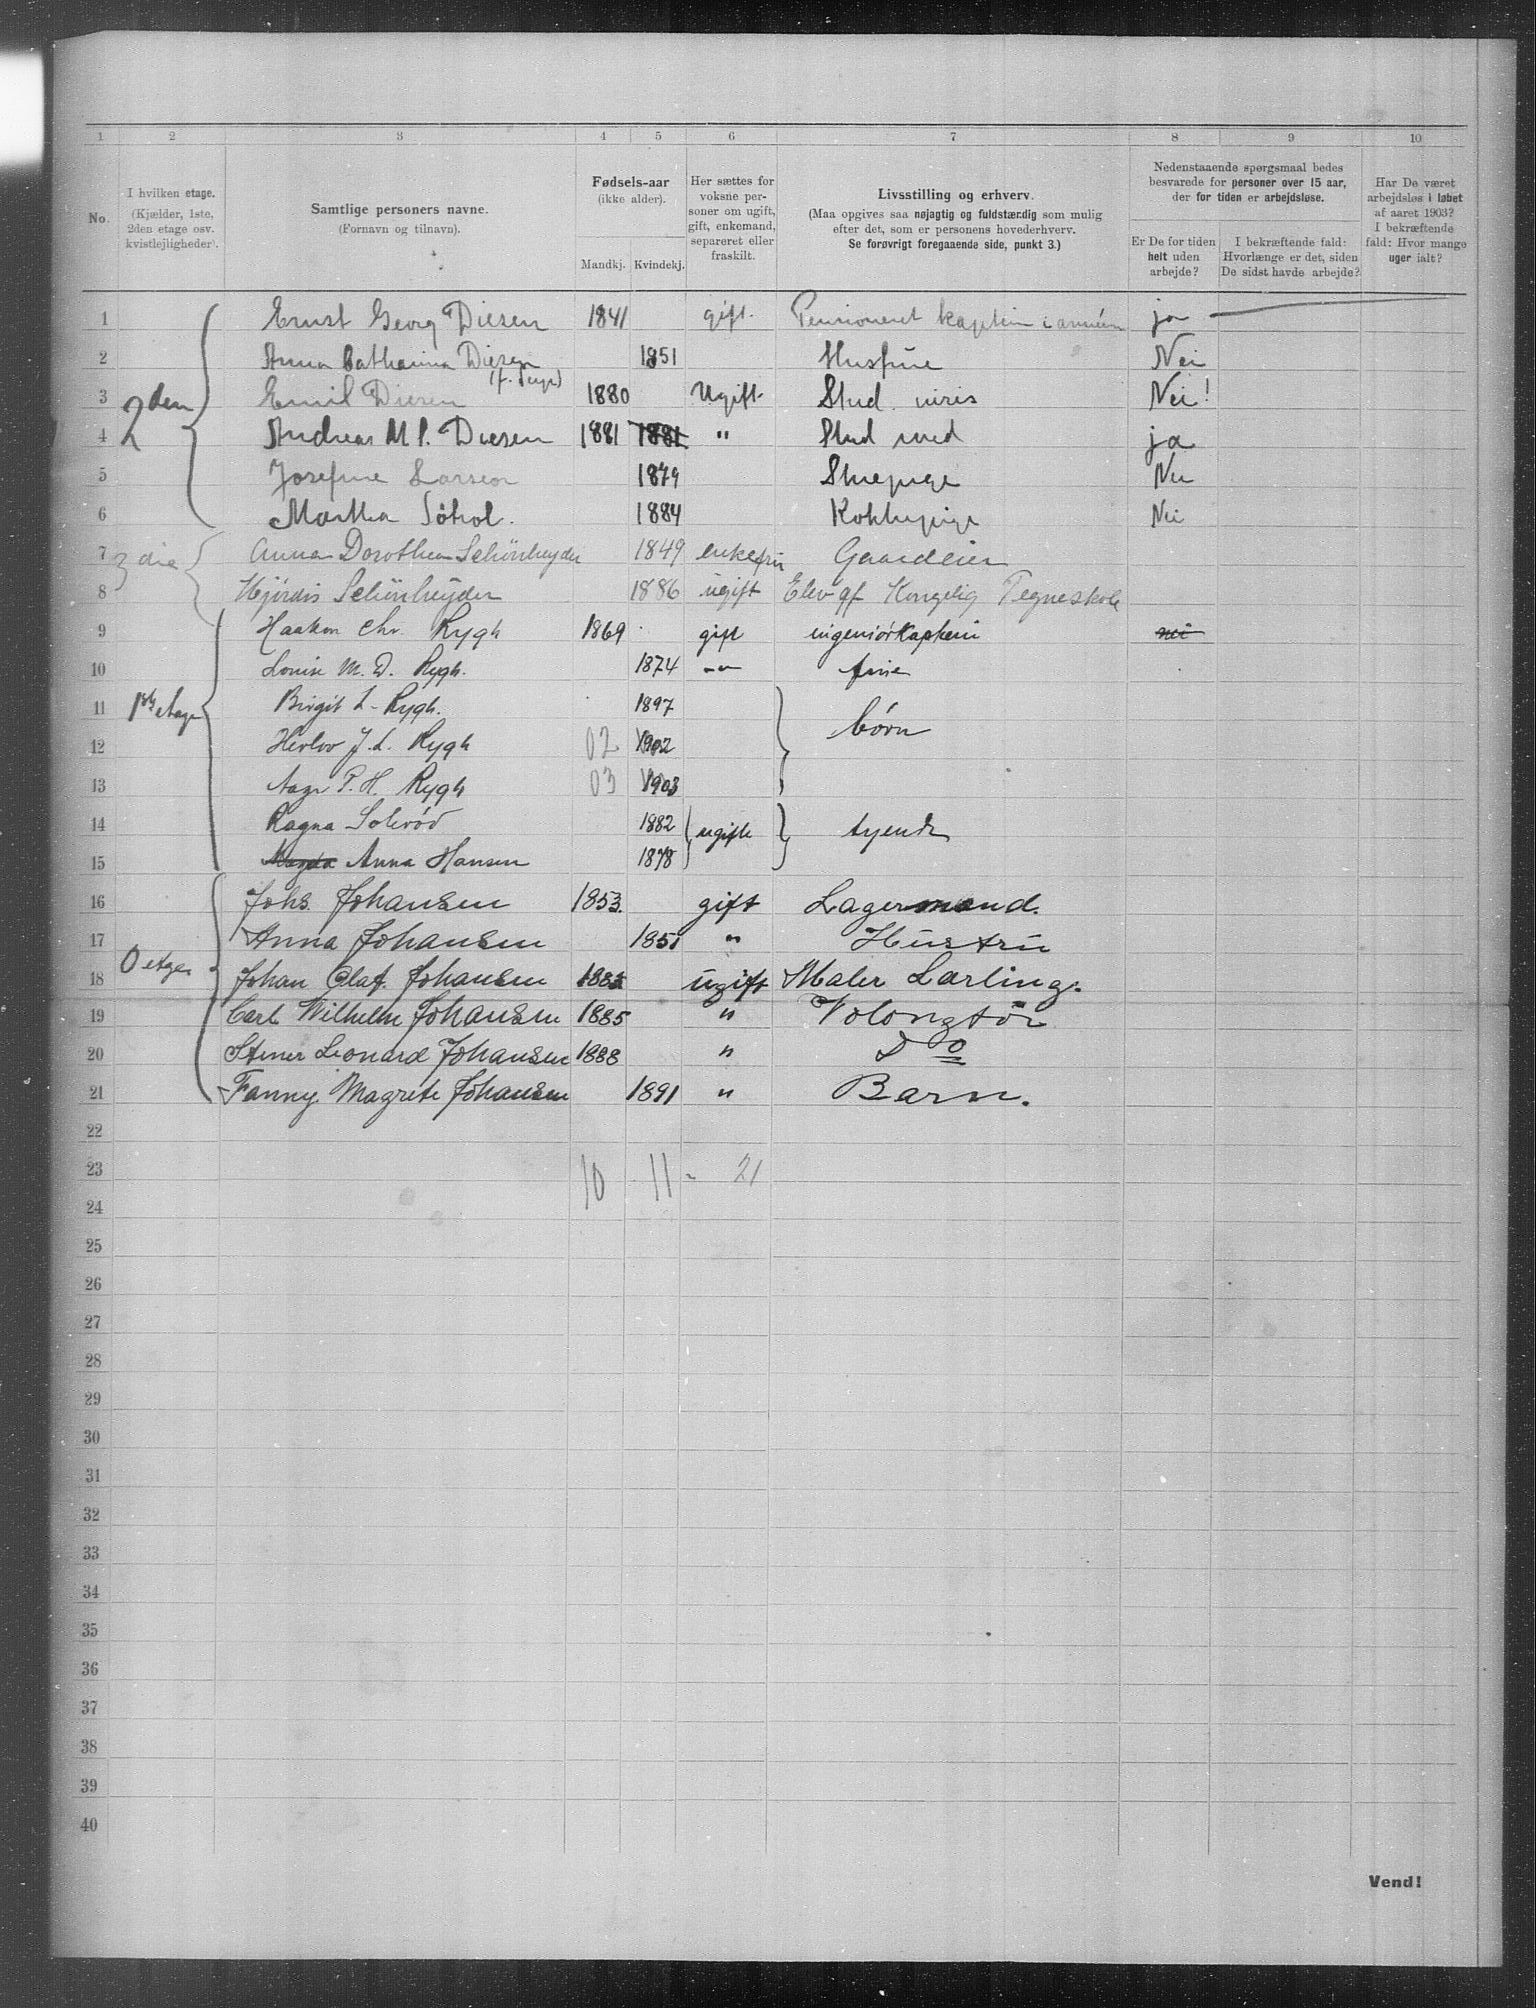 1 2 3 4 5 6 7 8 9 10
No.
I hvilken etage.
(Kjælder, 1ste,
2den etage osv.
kvistlejligheder).
Samtlige personers navne.
(Fornavn og tilnavn).
Fødsels-aar
(ikke alder).
Mandkj. Kvindekj.
Her sættes for
voksne per-
soner om ugift,
gift, enkemand,
separeret eller
fraskilt.
Livsstilling og erhverv.
(Maa opgives saa nøjagtig og fuldstændig som mulig
efter det, som er personens hovederhverv.
Se forøvrigt foregaaende side, punkt 3.)
Nedenstaaende spørgsmaal bedes
besvarede for personer over 15 aar,
der for tiden er arbejdsløse.
Er De for tiden
helt uden
arbejde?
I bekræftende fald:
Hvorlænge er det, siden
De sidst havde arbejde?
Har De været
arbejdsløs i løbet
af aaret 1903?
I bekræftende
fald: Hvor mange
uger ialt?
1 Ernst Georg Diesen 1841 gift. Pensioneret kaptein i armeen ja
2 Anna Catharina Diesen 1851 Husfrue Nei
3 2den Emil Diesen 1880 Ugift. Stud. juris Nei!
4 Andreas M P. Diesen 1881 1881 " Stud med ja
5 Josefine Larsen 1879 Stuepige Nei
6 Martha Söhol. 1884 Kokkepige Nei
7 3die Anna Dorothea Schönheyder 1849 enkefru Gaardeier
8 Hjördis Schönheyder 1886 ugift Elev af Kongelig Tegneskole
9 Haakon Chr. Rygh 1869 gift ingeniörkaptein nei
10 Louise M. D. Rygh. 1874 -"- frue
11 1ste etage Birgit L. Rygh. 1897 börn
12 Herlov J. L. Rygh 02 1902
13 Aage P. H. Rygh 03 1903
14 Ragna Solerød 1882 ugifte tyende
15 Magda Anna Hansen 1878
16 Johs. Johansen 1853. gift Lagermand.
17 Anna Johansen 1851 " Hustru
18 0 etage Johan Olaf. Johansen 1883 ugift Maler Lærling.
19 Carl Wilhelm Johansen 1885 " Volongtör
20 Stener Leonard Johansen 1888 " Do
21 Fanny Magrete Johansen 1891 " Barn.
22
23 10 11 - 21
24
25
26
27
28
29
30
31
32
33
34
35
36
37
38
39
40
Vend!